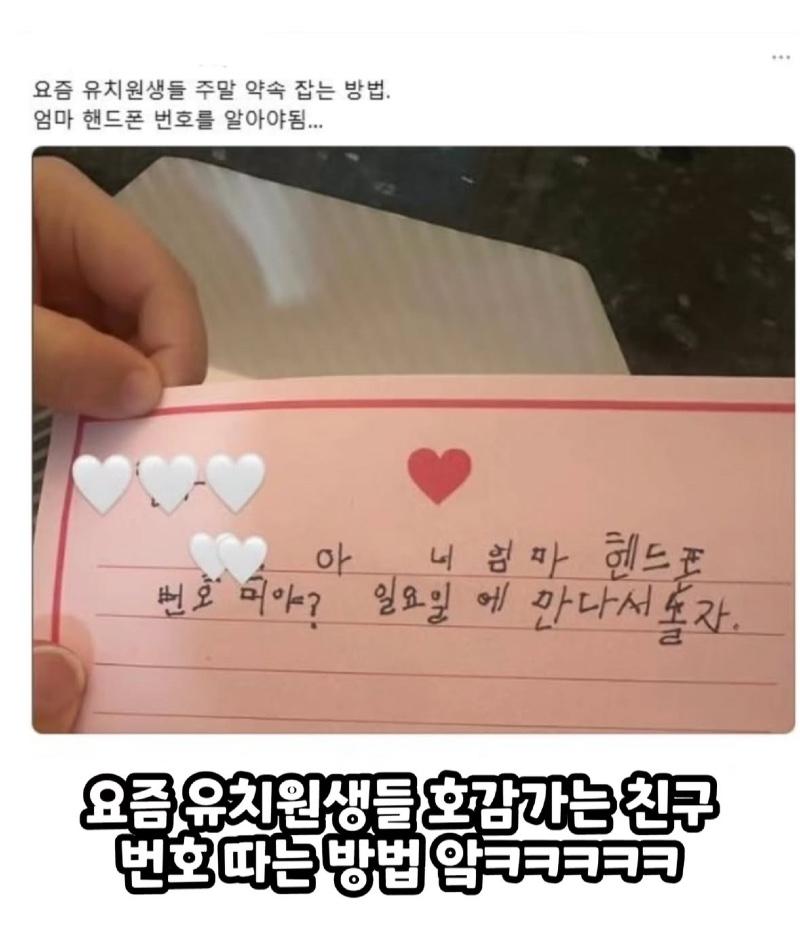 요즘 유치원생들 주말 약속 잡는 방법.
엄마 핸드폰 번호를 알아야됨...
아 너 엄마 헨드폰
번호 머야? 일요일에 만나서 놀자.
요즘 유치원생들 호감가는 친구
번호 따는 방법 앜ㅋㅋㅋㅋㅋ